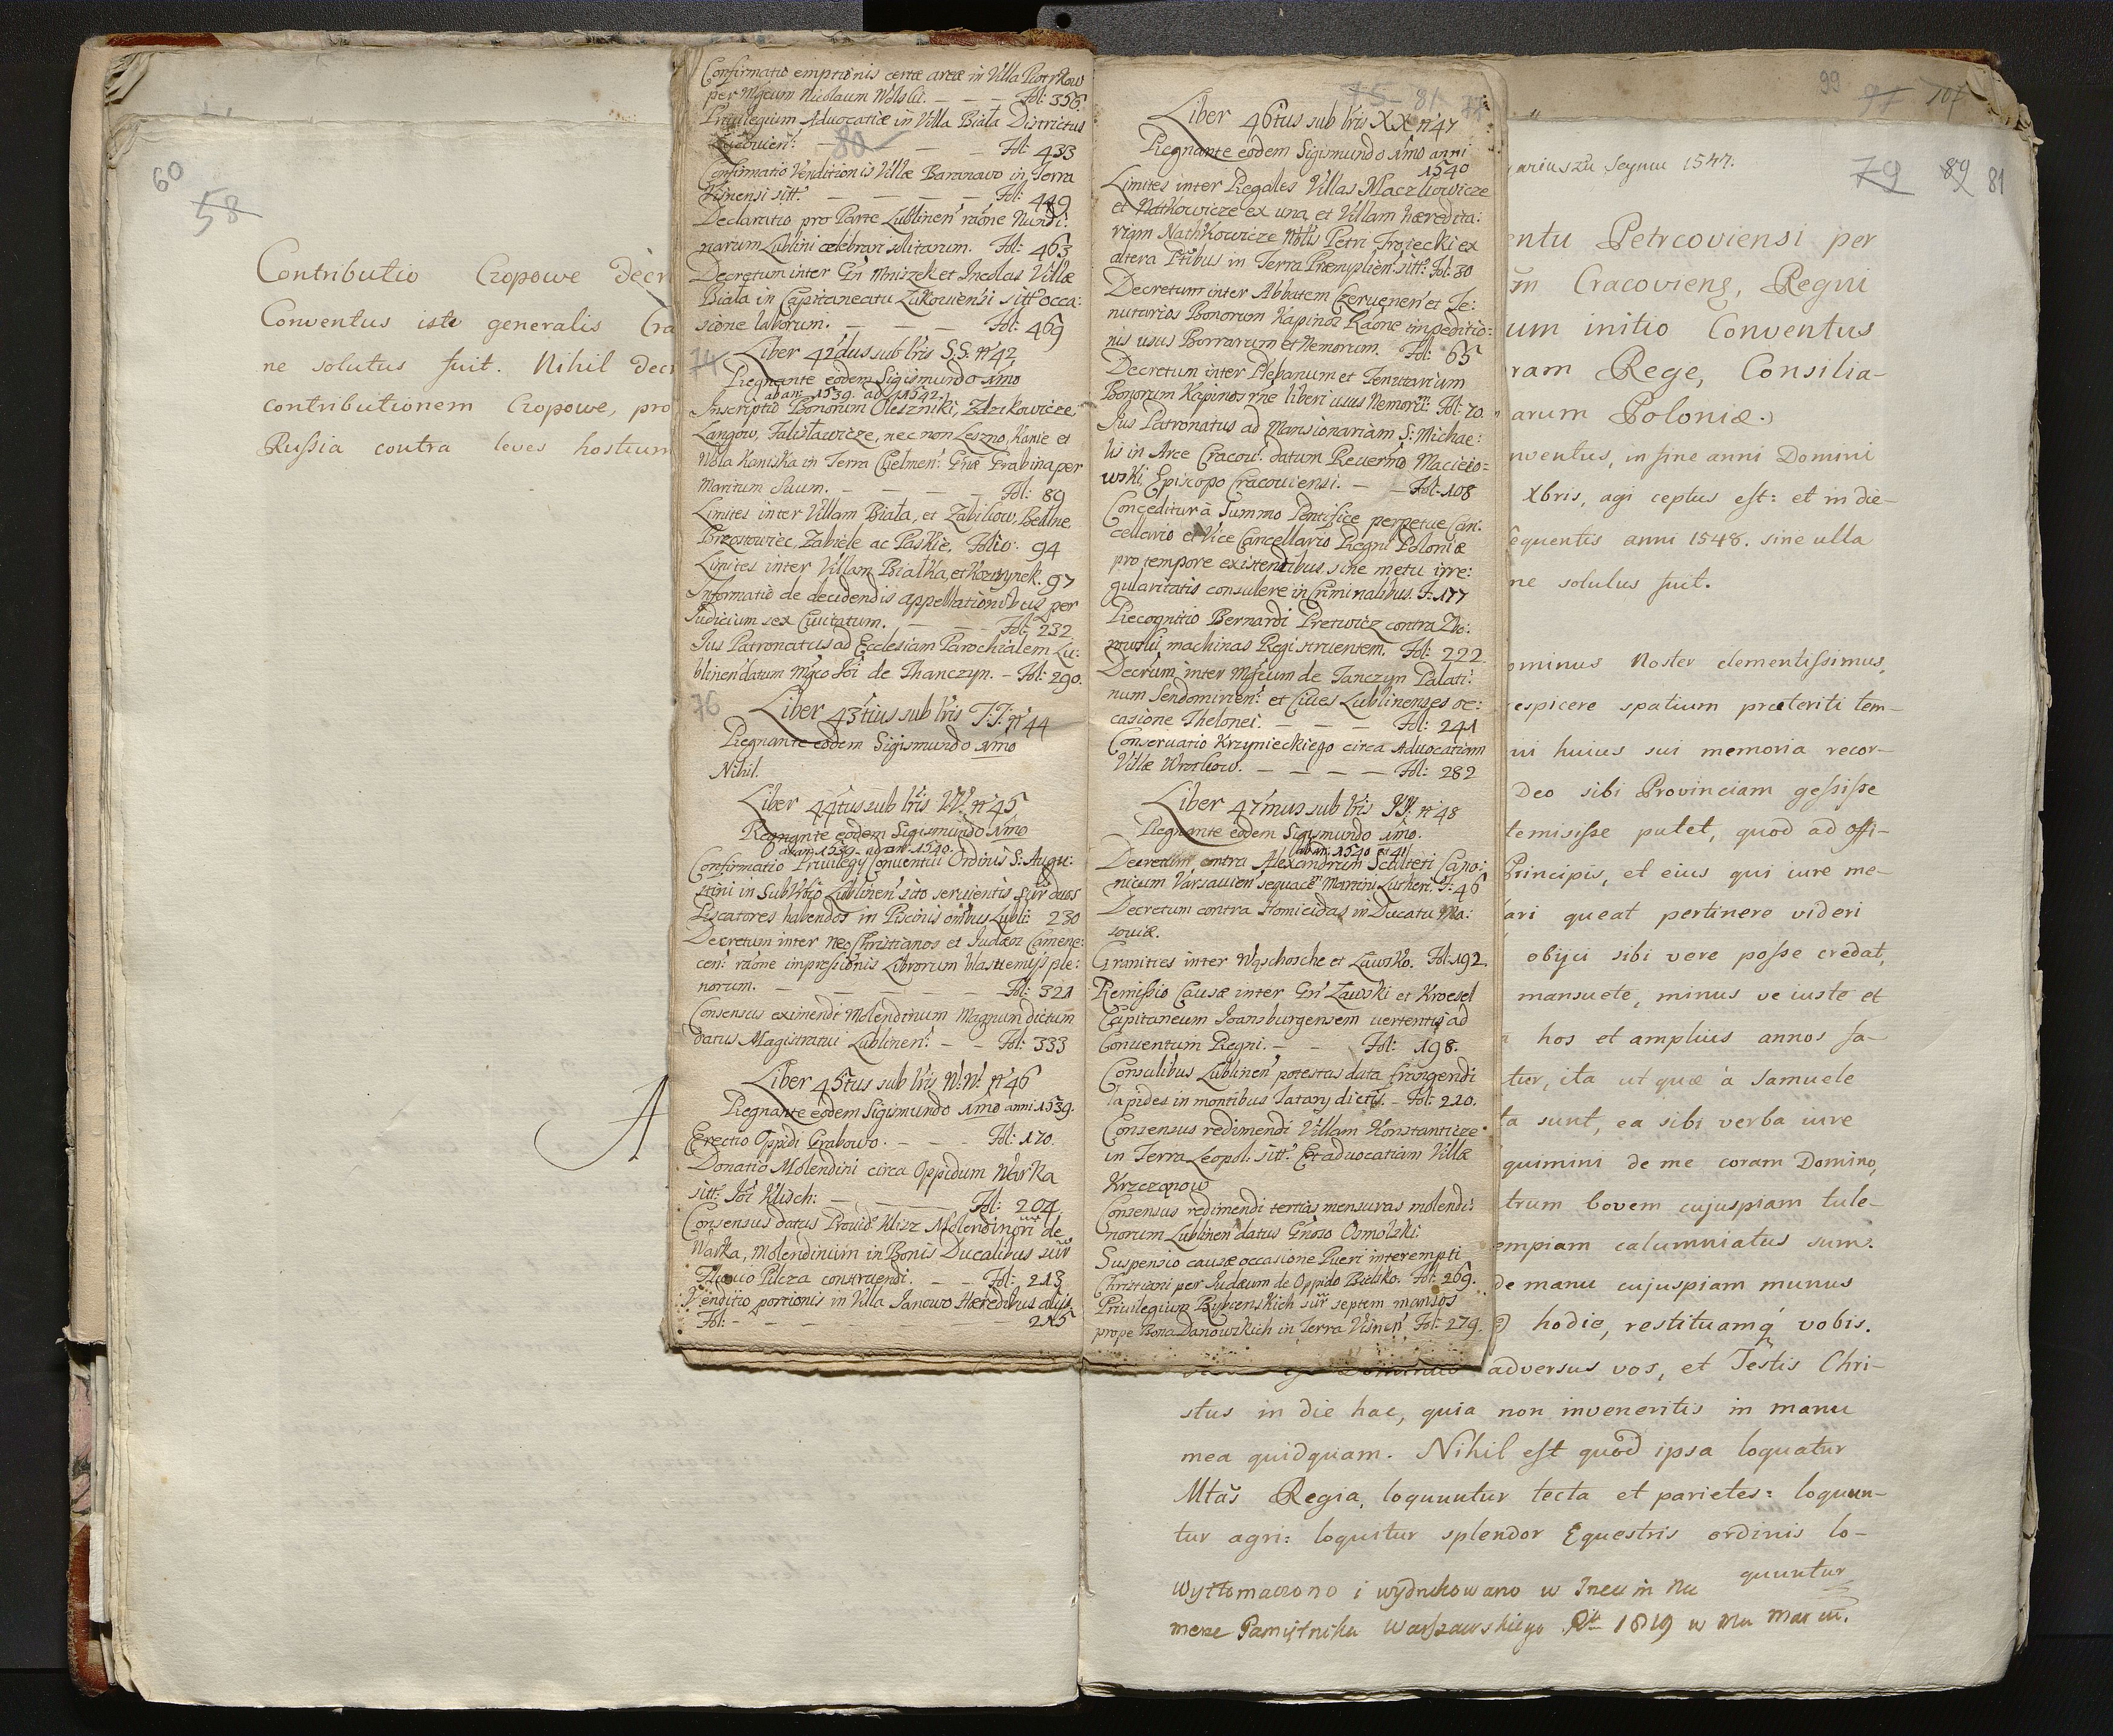 60
58
Contributio Czopowe decr
Conventus iste generalis Cra
ne solutus fuit. Nihil decr
contributionem Czopowe, pro
Russia contra leves hostium
Confirmatio emptionis certæ areæ in Villa Piotrkow
per Mgcum Nicolaum Wolski. — — — Fol: 356.
Privilegium Advocatiæ in Villa Biała Districtus
80 — — Fol: 433
Confirmatio Venditionis Villæ Barunowo in Terra
Visnensi sitt. — — — — Fol: 449
Declaratio pro Parte Lublinen' raõne Nundi:
narum Lublini celebrari solitarum. Fol: 463
Decretum inter Gn' Mniszek et Incolas Villæ
Biała in Capitaneatu Łukowiensi sitt' occa:
sione laborum. — — — Fol: 469
74
Liber 42dus sub lris S.S. n' 42
Regnante eodem Sigismundo 1mo
ab an: 1539. ad 1542.
Inscriptio Bonorum Oleszniki, Zdzikowicze
Langow, Falisławicze, nec non Leszno, Kanie et
Wola Kaniska in Terra Chelmen: Gnæ Grabina per
Maritum Suum. — — — — Fol: 89
Limites inter Villam Biała, et Zabikow, Bedlne
Brzostowiec, Zabiele ac Paskie. Folio: 94
Limites inter Villam Białka, et Kozirynek. 97
Informatio de decidendis appellationibus per
Judicium sex Civitatum. — — Fol: 232
Jus Patronatus ad Ecclesiam Parochialem Lu:
blinen' datum Mgco Joi de Thanczyn. — Fol: 290.
76
Liber 43tius sub lris T:T: n' 44
Regnante eodem Sigismundo 1mo
Nihil.
Liber 44tus sub lris VV. n' 45
Regnante eodem Sigismundo 1mo
ab an 1539. ad an' 1540.
Confirmatio Privilegy Conventui Ordinis S: Augu:
stini in Subvrbio Lublinen' sito servientis sup' duos
Piscatores habendos in Piscinis omnibus Lubli: 230
Decretum inter Neo Christianos et Judæos Camene:
cen: raõne impressionis Librorum blasfemijs ple:
norum. — — — — — Fol: 321
Consensus eximendi Molendinum Magnum dictum
datus Magistratui Lublinen: — — Fol: 333
Liber 45tus sub lris W:W: n' 46
Regnante eodem Sigismundo 1mo anni 1539.
Erectio Oppidi Grabowo. — — — Fol: 170.
Donatio Molendini circa Oppidum Warka
sitt: Joi Klisch: — — — Fol: 204.
Consensus datus Provid' Klisz Molendinori de
Warka, Molendinum in Bonis Ducalibus sup'
Fluvio Pilcza construendi. — — Fol: 213
Venditio portionis in Villa Janowo Hæredibus alijs
Fol: — — — — — — 215
A
75 81
Liber 46tus sub lris XX n' 47
Regnante eodem Sigismundo 1mo anni
1540
Limites inter Regales Villas Maczkowicze
et Natkowicze ex una et Villam hæredita:
riam Nathkowicze Nblis Petri Troiecki ex
altera Ptibus in Terra Præmyslien: sitt: Fol: 30
Decretum inter Abbatem Czervenen' et Te:
nutarios Bonorum Kapinos Raõne impeditio:
nis usus Borrarum et Nemorum. Fol: 65
Decretum inter Plebanum et Tenutarium
Bonorum Kapinos rne liberi usus Nemorũ: Fol: 70.
Jus Patronatus ad Mansionariam S: Michae:
lis in Arce Cracov: datum Reverño Macieio=
wski Episcopo Cracoviensi. — — Fol: 108
Conceditur à Summo Pontifice perpetue Can:
cellario et Vice Cancellario Regni Poloniæ
pro tempore existentibus sine metu irre:
gularitatis consulere in Criminalibus. F: 177
Recognitio Bernardi Pretwicz contra Zbo:
rowski machinas Regi struentem. Fol: 222.
Decrum inter Mgcum de Tanczyn Palati:
num Sendomirien: et Cives Lublinenses oc:
casione Thelonei. — — — Fol: 241
Conservatio Krzynieckiego circa Advocatiam
Villæ Wrotkow. — — — — Fol: 282
Liber 47mus sub lris YY: n' 48
Regnante eodem Sigismundo 1mo.
ab an: 1540 et 41
Decretum contra Alexandrum Sculteti Cano:
nicum Varsavien' sequacem Martini Lutheri. F: 46
Decretum contra Homicidas in Ducatu Ma:
soviæ.
Granities inter Wąschosche et Ławsko. Fol: 192.
Remissio Causæ inter Gn' Ławski et Kroesel
Capitaneum Joansburgensem vertentis ad
Conventum Regni. — — Fol: 198.
Consulibus Lublinen' potestas data frangendi
lapides in montibus Tatary dictis. — Fol: 210.
Consensus redimendi Villam Konstanticze
in Terra Leopol: sitt' Et advocatiam Villæ
Krzczonow
Consensus redimendi tertias mensuras molendi:
norum Lublinen' datus Gnoso Osmolski
Suspensio causæ occasione Pueri interempti
Christiani per Judæum de Oppido Bielsko. Fol: 269.
Privilegium Rybienskich sup' septem mansos
prope Bona Danowskich in Terra Visnen' Fol: 279.
99 97 107
ariuszũ Seymu 1547.
79 89 81
entu Petrcoviensi per
m Cracovieng, Regni
um initio Conventus
ram Rege, Consilia-
arum Poloniæ.
nventus, in fine anni Domini
Xbris, agi ceptus est: et in die-
equentis anni 1548. sine ulla
ne solutus fuit.
ominus Noster clementissimus,
espicere spatium præteriti tem-
ni huius sui memoria recor-
Deo sibi Provinciam gessisse
temisisse putet, quod ad offi-
Principis, et eius qui iure me-
ari queat pertinere videri
obijci sibi vere posse credat,
mansuete, minus ve iuste et
hos et amplius annos fa-
tur, ita ut quæ à Samuele
ta sunt, ea sibi verba iure
quimini de me coram Domino,
trum bovem cujuspiam tule-
empiam calumniatus sum.
de manu cujuspiam munus
hodie, restituamq́ vobis.
adversus vos, et Testis Chri-
stus in die hac, quia non inveneritis in manu
mea quidquam. Nihil est quod ipsa loquatur
Mtas Regia, loquuntur tecta et parietes: loquun-
tur agri: loquitur splendor Equestris ordinis lo-
quuntur
Wytłomaczono i wydrukowano w Trzecim Nu
merze Pamiętnika Warszawskiego Rk 1819 w Mu Marcu.